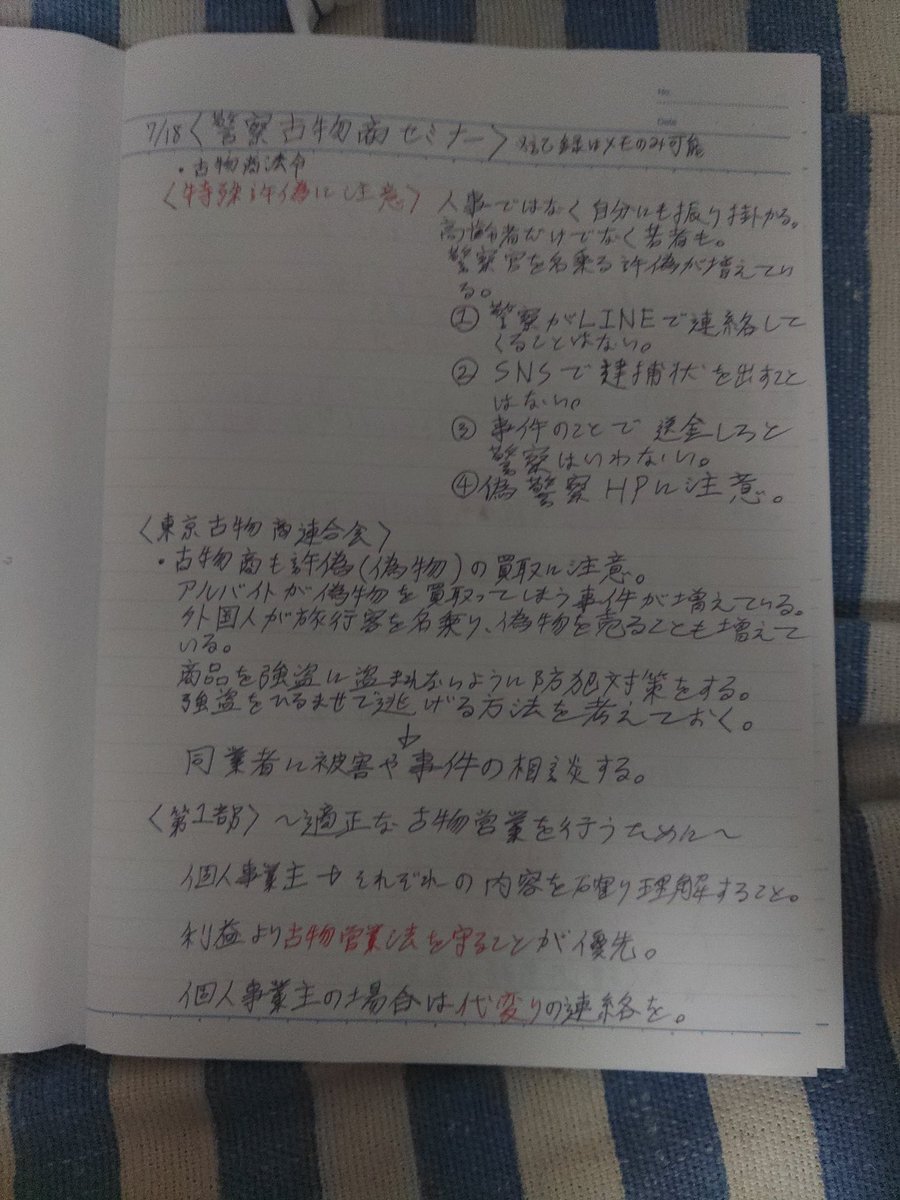 No.
Date
7/18〈警察古物商セミナー〉 記録はメモのみ可能
・古物商法令
〈特殊詐偽に注意〉 人事ではなく自分にも振り掛かる。
高齢者だけでなく若者も。
警察官を名乗る詐偽が増えてい
る。
① 警察がLINEで連絡して
くることはない。
② SNSで逮捕状を出すこと
はない。
③ 事件のことで送金しろと
警察はいわない。
④偽警察HPに注意。
〈東京古物商連合会〉
・古物商も詐偽(偽物)の買取に注意。
アルバイトが偽物を買取ってしまう事件が増えている。
外国人が旅行客を名乗り、偽物を売ることも増えて
いる。
商品を強盗に盗まれないように防犯対策をする。
強盗をひるませて逃げる方法を考えておく。
↓
同業者に被害や事件の相談する。
〈第1部〉～適正な古物営業を行うために～
個人事業主→それぞれの内容を確り理解すること。
利益より古物営業法を守ることが優先。
個人事業主の場合は代変りの連絡を。